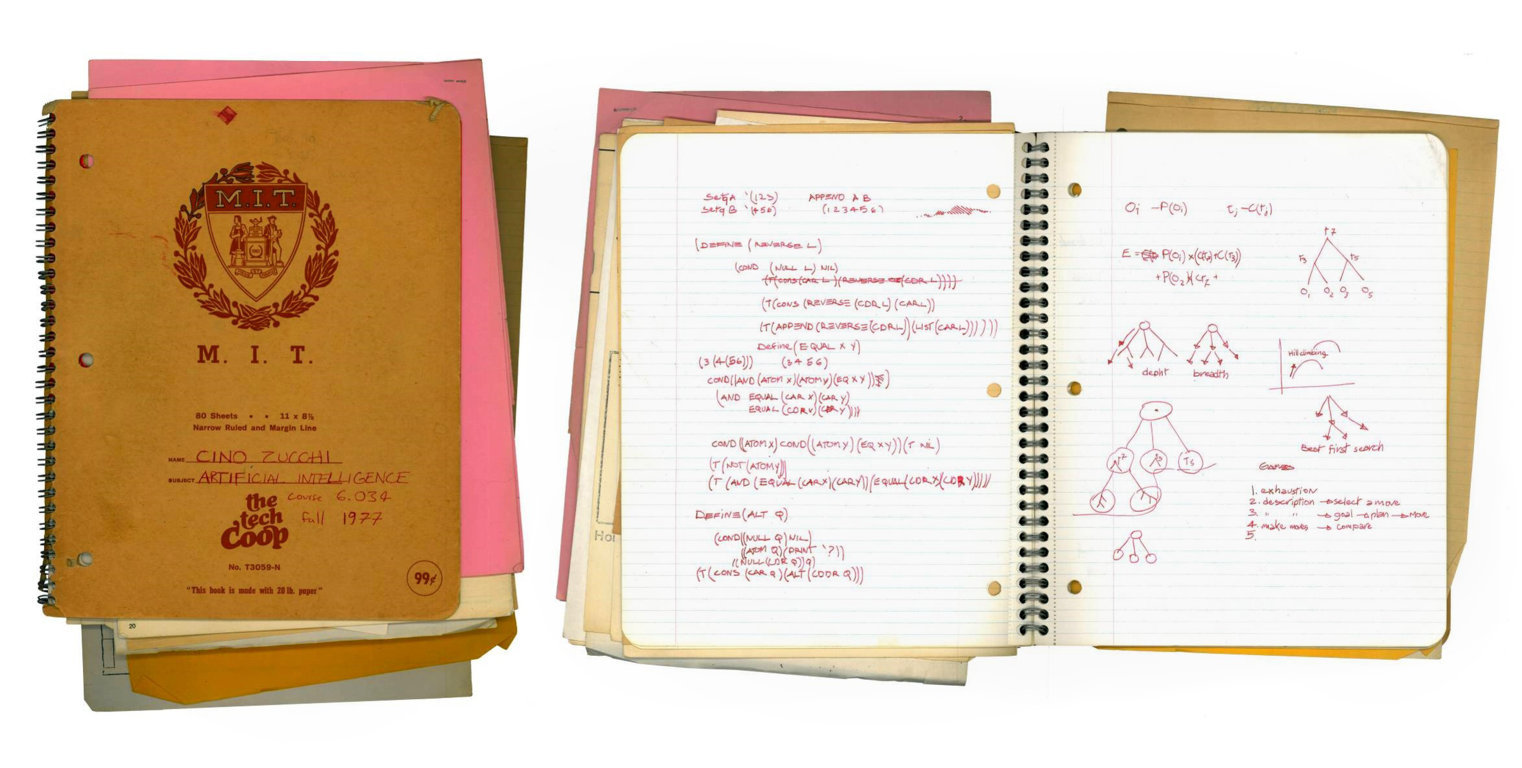 M.I.T.
M. I. T.
80 Sheets • • 11 x 8½
Narrow Ruled and Margin Line
NAME CINO ZUCCHI
SUBJECT ARTIFICIAL INTELLIGENCE
course 6.034
fall 1977
the
tech
Coop
No. T3059-N
99¢
"This book is made with 20 lb. paper"
20
Setq A '(123) APPEND A B
Setq B '(456) (123456)
(DEFINE (REVERSE L)
(COND (NULL L) NIL)
(T(CONS(CAR L)(REVERSE (CDR L))))
(T(CONS (REVERSE (CDR L) (CAR L))
(T(APPEND (REVERSE(CDR L))(LIST(CAR L)))))))
Define (EQUAL X Y)
(3(4(56))) (3456)
COND((AND (ATOM X)(ATOM Y)(EQ X Y))
(AND EQUAL (CAR X)(CAR Y)
EQUAL (CDR X)(CDR Y)))
COND((ATOM X)COND((ATOM Y)(EQ X Y))(T NIL)
(T(NOT(ATOM Y))
(T (AND (EQUAL (CAR X)(CAR Y))(EQUAL(CDR X)(CDR Y))))
DEFINE(ALT Q)
(COND((NULL Q)NIL)
((ATOM Q)(PRINT '?))
((NULL(CDR Q))Q)
(T(CONS (CAR Q)(ALT(CDDR Q)))
Oi –P(Oi) tj –C(tj)
E = P(O1) x(C(t2)+C(t3))
+P(O2)
t2
t3 t5
O1 O2 O3 O5
depht breadth
Hillclimbing
T2 T3
Best first search
Games
1. exhaustion
2. description →select a move
3. " " → goal → plan → move
4. make moves → compare
5.